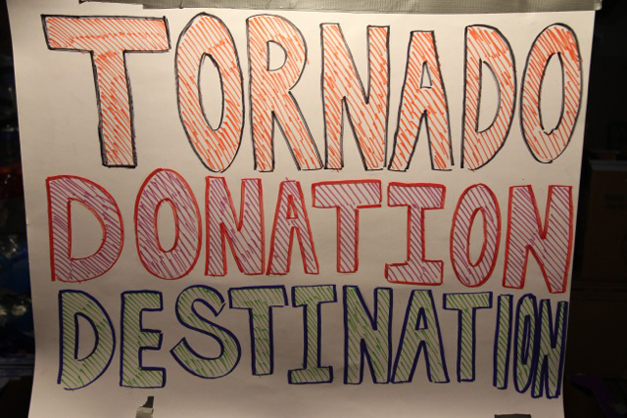 TORNADO
DONATION
DESTINATION